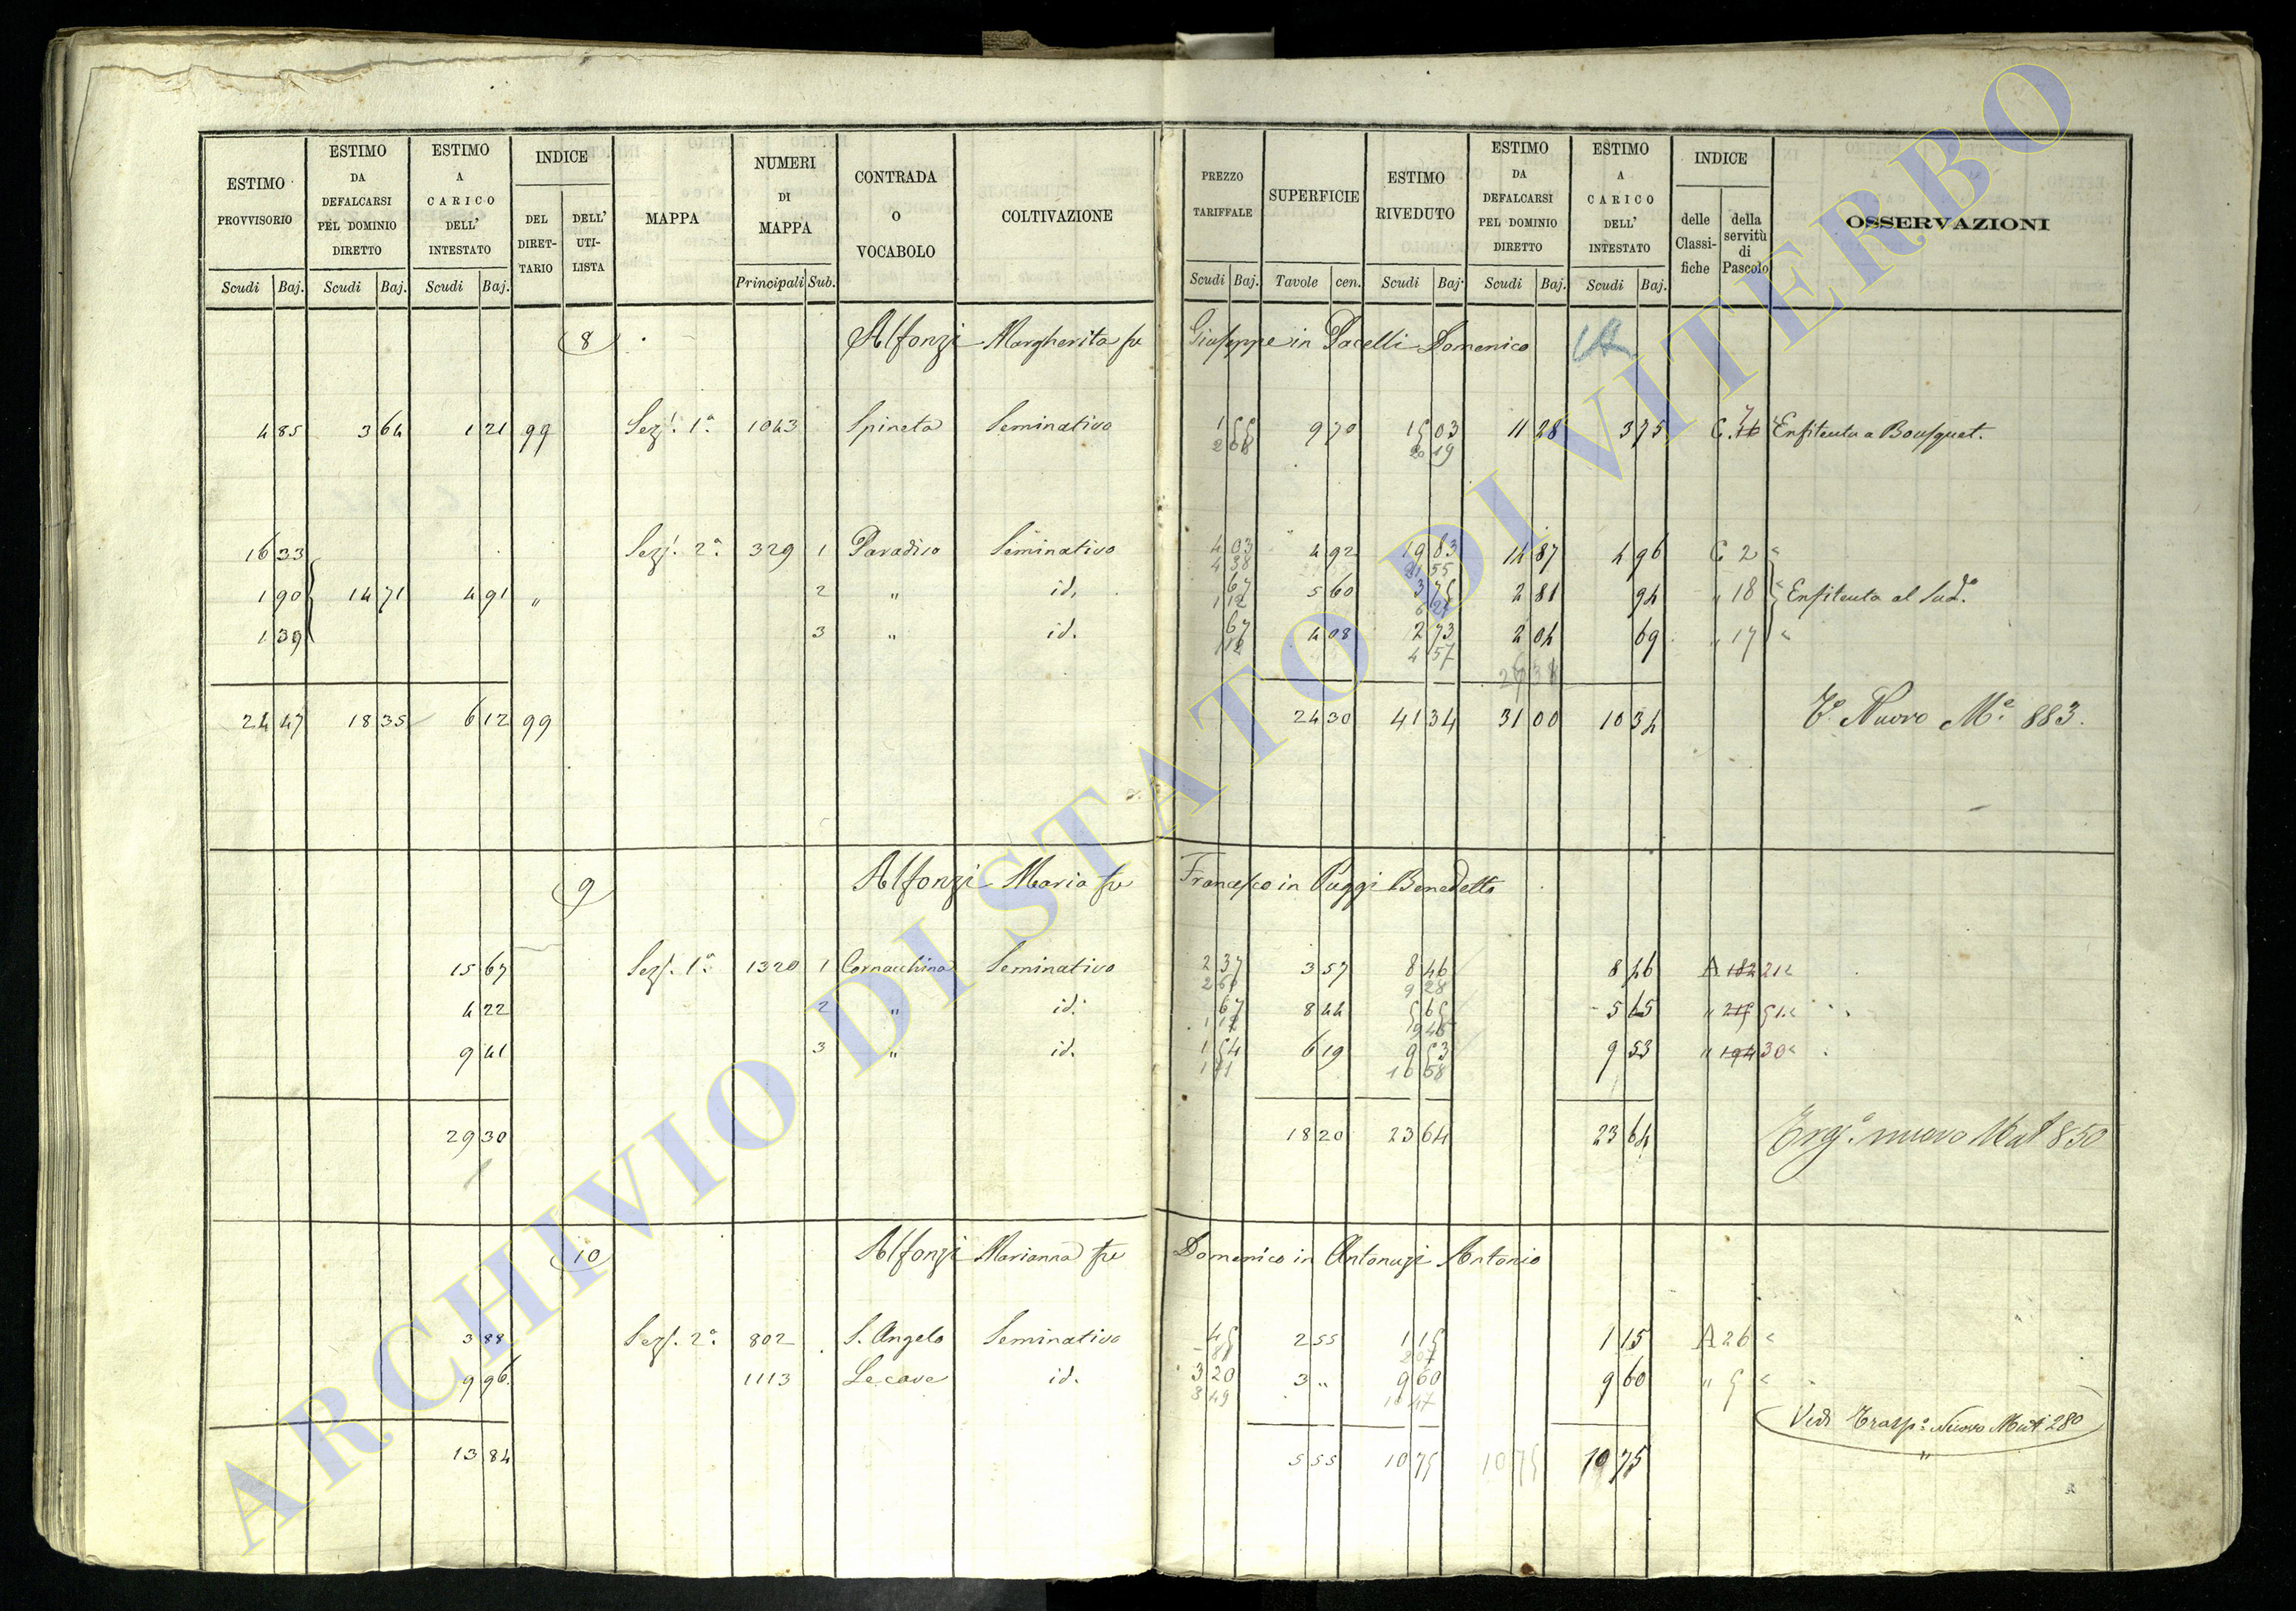 ESTIMO PROVVISORIO
ESTIMO DA DEFALCARSI PEL DOMINIO DIRETTO
ESTIMO A CARICO DELL' INTESTATO
INDICE
DEL DIRET-TARIO
DELL' UTI-LISTA
MAPPA
NUMERI DI MAPPA
CONTRADA O VOCABOLO
COLTIVAZIONE
PREZZO TARIFFALE
SUPERFICIE
ESTIMO RIVEDUTO
ESTIMO DA DEFALCARSI PEL DOMINIO DIRETTO
ESTIMO A CARICO DELL' INTESTATO
INDICE
delle Classi-fiche
della servitù di Pascolo
OSSERVAZIONI
Scudi Baj. Scudi Baj. Scudi Baj. Principali Sub. Scudi Baj. Tavole cen. Scudi Baj. Scudi Baj. Scudi Baj.
8 Alfonzi Margherita fu Giuseppe in Pacelli Domenico
4 85 3 64 1 21 99 Sez. 1ª 1043 Spineta Seminativo 1 55 9 70 15 03 11 28 3 75 C. 7 Enfiteuta a Bousquet.
2 08 20 19
16 33 Sez. 2ª 329 1 Paradiso Seminativo 4 03 4 92 19 83 14 87 4 96 C 2 "
4 38 21 55
1 90 14 71 4 91 " 2 " id. 67 5 60 3 75 2 81 94 " 18 " Enfiteuta al Sud.º
1 12 6 27
1 39 3 " id. 67 4 08 2 73 2 04 69 " 17 "
1 12 4 57
24 47 18 35 6 12 99 24 30 41 34 31 00 10 34 Nuovo M.e 883.
9 Alfonzi Maria fu Francesco in Puggi Benedetto
15 67 Sez. 1ª 1320 1 Cornacchina Seminativo 2 37 3 57 8 46 8 46 A 182 21 "
2 60 9 28
4 22 2 " id. 67 8 44 5 65 5 65 " 215 51 "
1 12 9 45
9 41 3 " id. 1 54 6 19 9 53 9 53 " 194 30 "
1 71 10 58
29 30 18 20 23 64 23 64 nuovo Mat 850
10 Alfonzi Marianna fu Domenico in Antonuzi Antonio
3 88 Sez. 2ª 802 S. Angelo Seminativo 45 2 55 1 15 1 15 A 26 "
81 2 07
9 96 1113 Le cave id. 3 20 3 " 9 60 9 60 " 5 "
3 49 10 47
Vedi Trasp.º Nuovo Mat 280
13 84 5 55 10 75 10 75 10 75
ARCHIVIO DI STATO DI VITERBO